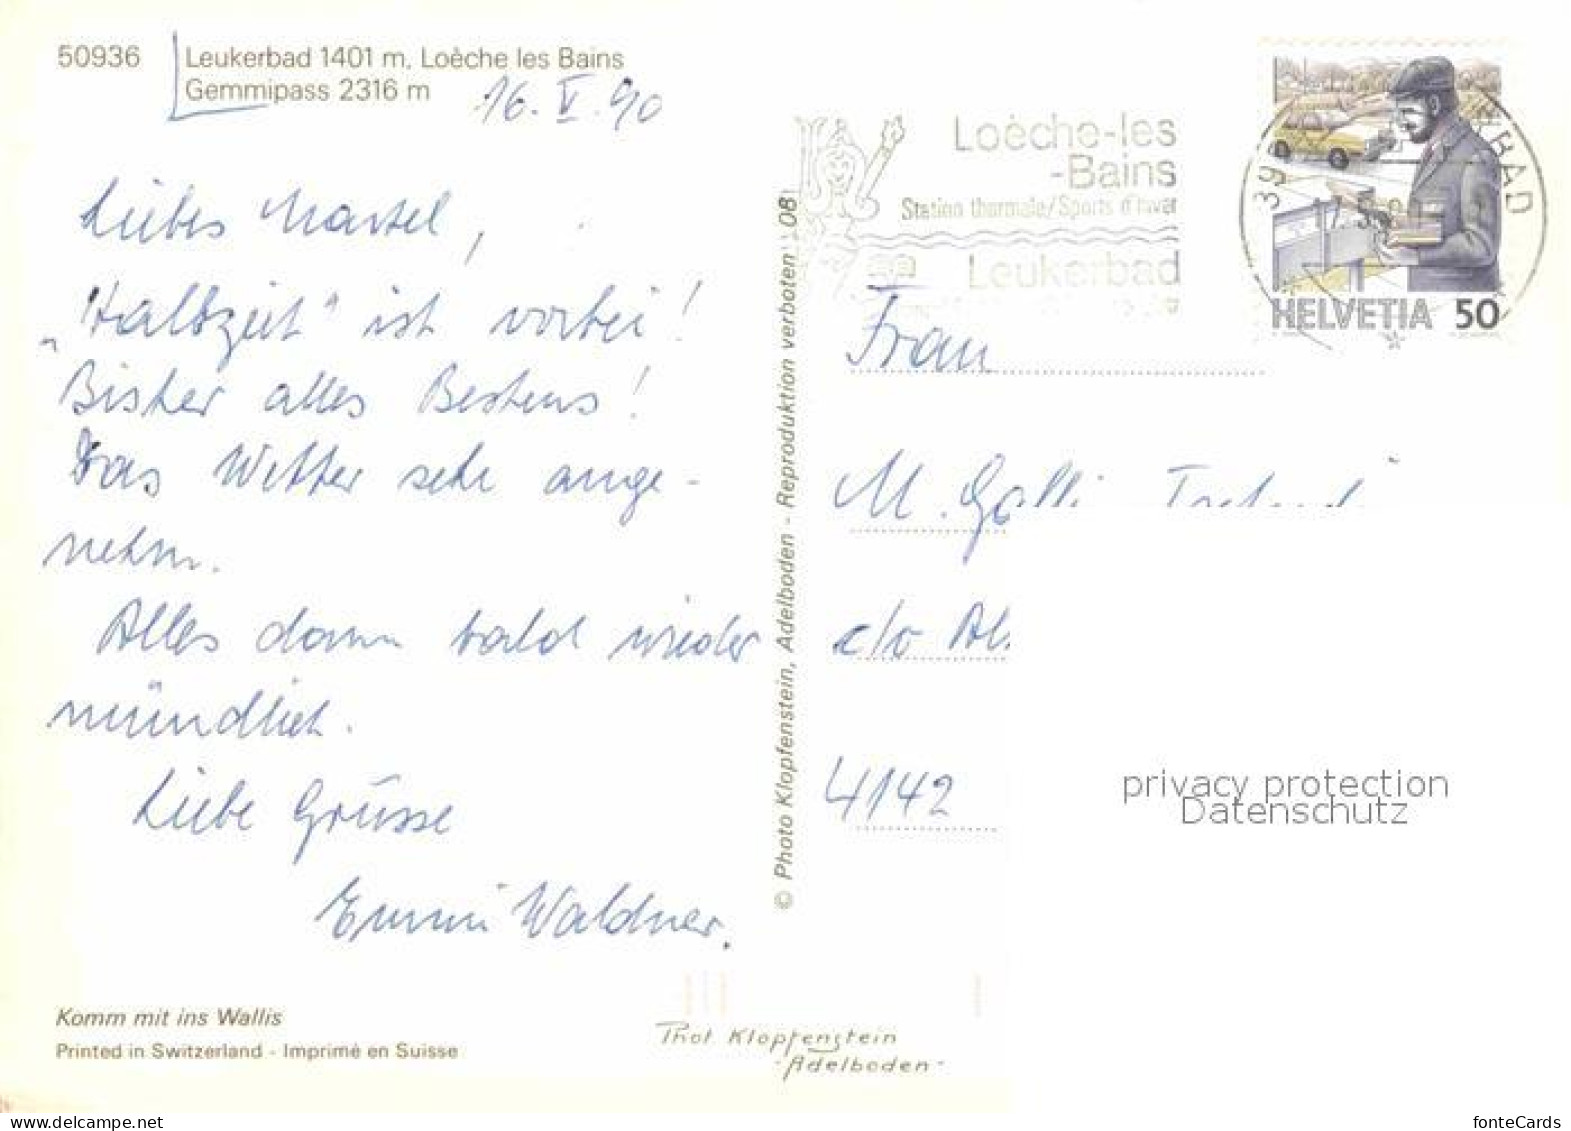 50936
Leukerbad 1401 m, Loèche les Bains
Gemmipass 2316 m
16. V. 90
Liebes Martel,
„Halbzeit“ ist vorbei!
Bisher alles Bestens!
Das Wetter sehr ange-
nehm.
Alles dann bald wieder
mündlich.
Liebe Grüsse
Emmi Waldner.
Komm mit ins Wallis
Printed in Switzerland - Imprimé en Suisse
© Photo Klopfenstein, Adelboden - Reproduktion verboten 08
Phot. Klopfenstein
- Adelboden -
Loèche-les
-Bains
Station thermale/Sports d'hiver
Leukerbad
HELVETIA 50
Frau
M. Galli
c/o
4142
privacy protection
Datenschutz
fonteCards